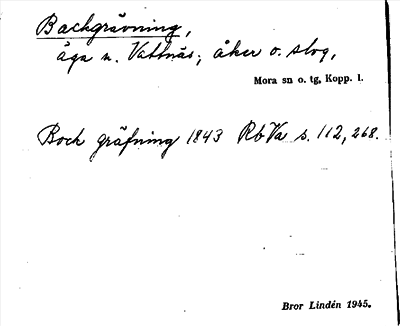 Backgrävning,
äga n. Vattnäs; åker o. slog,
Mora sn o. tg, Kopp. l.
Boch gräfning 1843 Rb Va s. 112, 268.
Bror Lindén 1945.